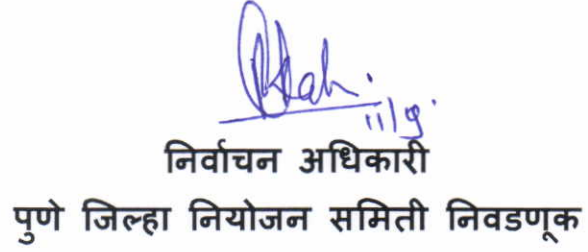 11/9.
निर्वाचन अधिकारी
पुणे जिल्हा नियोजन समिती निवडणूक